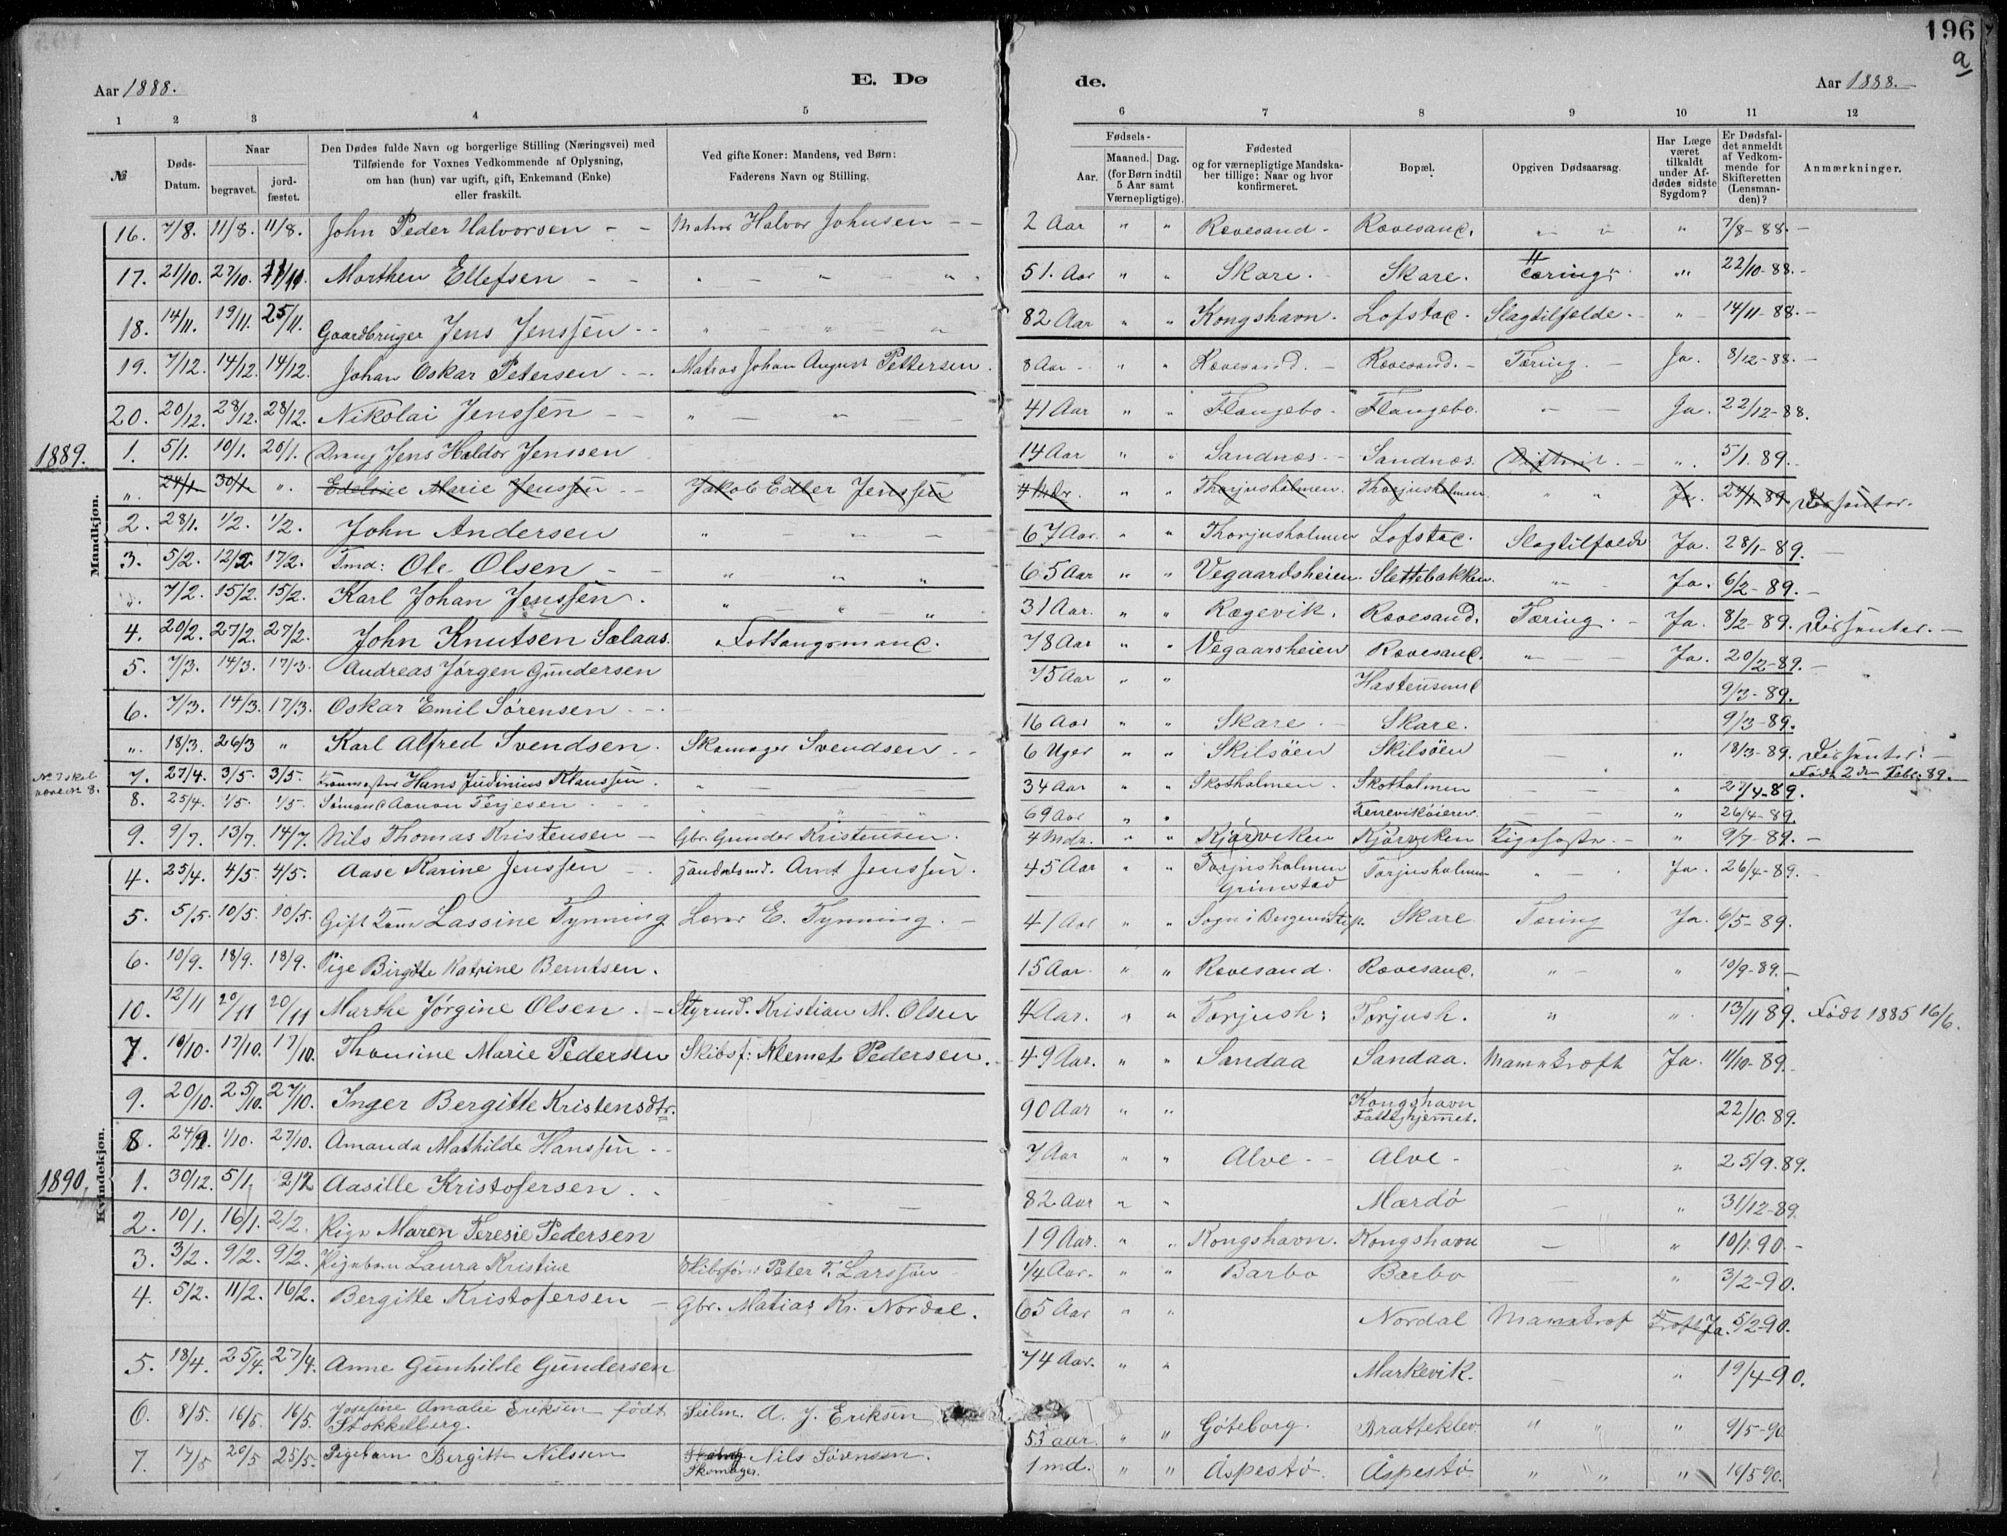 196
a
Aar 1888.
E. Dø
de.
Aar 1888.
1 2 3 4 5
6 7 8 9 10 11 12
№
Døds-Datum.
Naar
begravet.
jord-fæstet.
Den Dødes fulde Navn og borgerlige Stilling (Næringsvei) med
Tilføiende for Voxnes Vedkommende af Oplysning,
om han (hun) var ugift, gift, Enkemand (Enke)
eller fraskilt.
Ved gifte Koner: Mandens, ved Børn:
Faderens Navn og Stilling.
Fødsels-
Aar.
Maaned. Dag.
(for Børn indtil
5 Aar samt
Værnepligtige).
Fødested
og for værnepligtige Mandska-
ber tillige: Naar og hvor
konfirmeret.
Bopæl.
Opgiven Dødsaarsag.
Har Læge
været
tilkaldt
under Af-
dødes sidste
Sygdom?
Er Dødsfal-
det anmeldt
af Vedkom-
mende for
Skifteretten
(Lensman-
den)?
Anmærkninger.
Mandkjøn.
16. 7/8. 11/8. 11/8. John Peder Halvorsen Matros Halvor Johnsen 2 Aar " " Rævesand Rævesand. " 7/8-88.
17. 21/10. 27/10. Morthen Ellefsen 51. Aar " " Skare. Skare. Tæring " 22/10-88.
18. 14/11. 19/11. 25/11. Gaardbruger Jens Jenssen 82 Aar " " Kongshavn. Lofstad. Slagtilfælde. " 14/11-88.
19. 7/12. 14/12. 14/12. Johan Oskar Petersen Matros Johan August Pettersen. 8 Aar " " Rævesand. Rævesand. Tæring. Ja. 8/12-88.
20. 20/12. 28/12. 28/12. Nikolai Jenssen 41 Aar " " Flangebo. Flangebo. Ja. 22/12-88.
1889.
1. 5/1. 10/1. 20/1. Dreng Jens Haldor Jenssen 14 Aar " " Sandnæs. Sandnæs. " 5/1. 89.
". 24/1. 30/1. ". Marie Jenssen Jakob Edler Jenssen 4 Mdr. " " Thorjusholmen. Thorjusholmen. " " Ja. 24/1 89. Dissenter.
2. 28/1. 1/2. 1/2. John Andersen 67 Aar. " " Thorjusholmen Lofstad. Slagtilfælde Ja. 28/1-89.
3. 5/2. 12/2. 17/2. Tmd: Ole Olsen 65 Aar " " Vegaardsheien. Slettebakken. Ja. 6/2-89.
". 7/2. 15/2. 15/2. Karl Johan Jenssen. 31 Aar. " " Rægevik. Rævesand. Tæring. Ja. 8/2-89. Dissenter.
4. 20/2. 27/2. 27/2. John Knutsen Sælaas. 78 Aar " " Vegaarsheien Rævesand. Ja. 20/2-89.
5. 7/3. 14/3. 17/3. Andreas Jørgen Gundersen 75 Aar " " 9/3-89.
6. 7/3. 14/3. 17/3. Oskar Emil Sørensen 16 Aar " " Skare Skare. 9/3-89.
". 18/3. 26/3 " Karl Alfred Svendsen. Skomager Svendsen 6 Uger " " Skilsöen Skilsöen " 18/3-89. Dissenter.
Født 2den Febr. 89.
7. 27/4. 3/5. 3/5. Hans Klaussen. 34 Aar " " Skotholmen. Skotholmen " 27/4-89.
8. 25/4. 1/5. 1/5. Aanon Terjesen 69 Aar " " " 26/4-89.
9. 9/7. 13/7. 14/7. Nils Thomas Kristensen Gbr. Gunder Kristensen. 4 Mdr. " " Kjörviken Kjörviken " 9/7-89.
Kvindekjøn.
4. 25/4. 4/5. 4/5. Aase Karine Jenssen Arnt Jenssen. 45 Aar " " Torjusholmen
Grimstad Torjusholmen Ja. 26/4-89.
5. 5/5. 10/5. 10/5. Gift Kone Lassine Tynning Lærer E. Tynning. 41 Aar " " Sogn i Bergens Stip. Skare Tæring Ja. 6/5-89.
6. 10/9. 18/9. 18/9. Pige Birgitte Katrine Berntsen. 15 Aar. " " Rævesand. Rævesand. " 10/9-89.
10. 12/11 20/11 20/11 Marthe Jørgine Olsen. Styrmd. Kristian M. Olsen 4 Aar. " " Torjush: Torjush. " " 13/11 89. Født 1885 16/6.
7. 10/10. 17/10. 17/10. Thomine Marie Pedersen Skibsf: Klemet Pedersen. 49 Aar. " " Sandaa Sandaa. Mamakræft Ja. 11/10-89.
9. 20/10. 25/10. 27/10. Inger Bergitte Kristensdtr. 90 Aar " " Kongshavn
Fattighjemmet. 22/10. 89.
8. 24/9. 1/10. 27/10. Amanda Mathilde Hanssen 7 Aar " " Alve Alve " 25/9-89.
1890.
1. 30/12. 5/1. 2/2 Aasille Kristofersen 82 Aar " " Mærdö " 31/12-89.
2. 10/1. 16/1. 2/2. Pige Maren Teresie Pedersen 19 Aar. " " Kongshavn. Kongshavn " 10/1 90.
3. 3/2. 9/2. 9/2. Pigebarn Laura Kristine Skibsför: Peter T. Larssön 1/4 Aar. " " Barbo Barbo " 3/2-90.
4. 5/2. 11/2. 16/2. Bergitte Kristofersen Gbr. Matias Kr. Nordal. 65 Aar " " Nordal Mamakræf Ja. 5/2-90.
5. 18/4. 25/4. 27/4. Anne Gunhilde Gundersen 74 Aar. " " Markevik. " 19/4-90.
6. 8/5. 16/5. 16/5. Josefine Amalie Eriksen født
Stokkelberg. Seilm. A. J. Eriksen 53 aar. " " Göteborg. Bratteklev " " " 9/5-90
7. 17/5 20/5 25/5. Pigebarn Bergitte Nilssen Nils Sörensen.
Skomager. 1 md. " " Aspestö. Aspestö " " " 16/5 90.